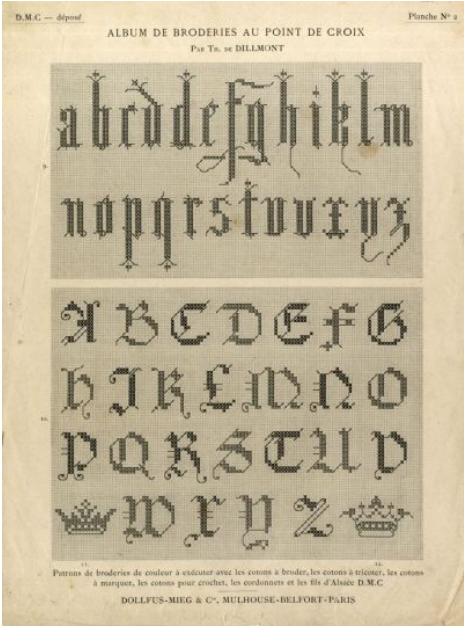 D.M.C — déposé
Planche Nº 2
ALBUM DE BRODERIES AU POINT DE CROIX
PAR TH. DE DILLMONT
9.
a b c d d e f g h i k l m
n o p q r s t u v x y z
10.
A B C D E F G
H I K L M N O
P Q R S T U V
W X Y Z
11.
12.
Patrons de broderies de couleur à exécuter avec les cotons à broder, les cotons à tricoter, les cotons
à marquer, les cotons pour crochet, les cordonnets et les fils d'Alsace D.M.C
DOLLFUS-MIEG & Cie, MULHOUSE-BELFORT-PARIS